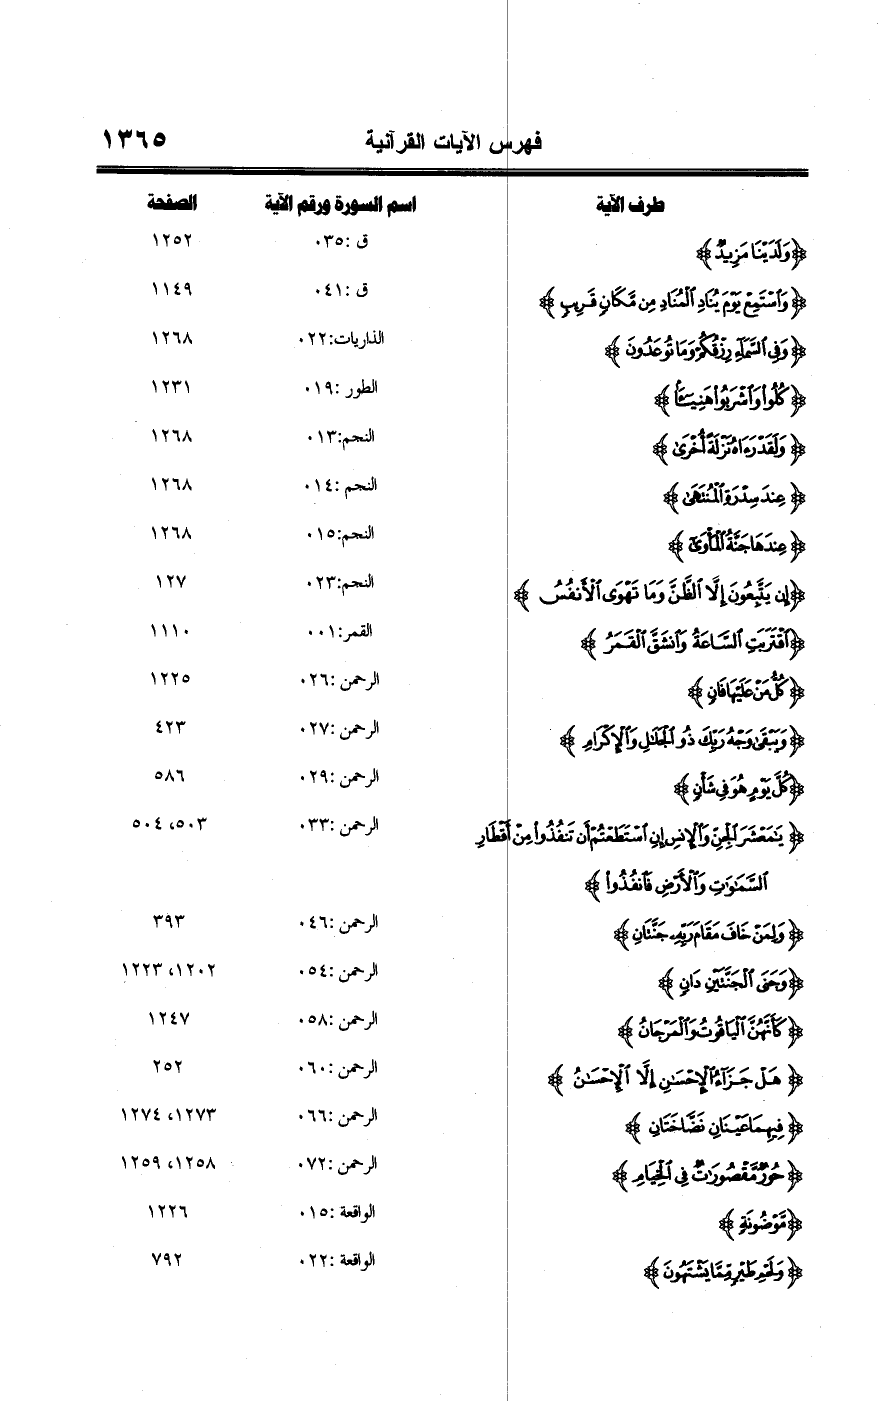 فهرس الآيات القرآنية ١٣٦٥
طرف الآية اسم السورة ورقم الآية الصفحة
﴿وَلَدَيْنَا مَزِيدٌ﴾ ق :٠٣٥ ١٢٥٢
﴿وَاسْتَمِعْ يَوْمَ يُنَادِ الْمُنَادِ مِن مَّكَانٍ قَرِيبٍ﴾ ق :٠٤١ ١١٤٩
﴿وَفِي السَّمَاءِ رِزْقُكُمْ وَمَا تُوعَدُونَ﴾ الذاريات:٠٢٢ ١٢٦٨
﴿كُلُوا وَاشْرَبُوا هَنِيـًٔا﴾ الطور :٠١٩ ١٢٣١
﴿وَلَقَدْ رَءَاهُ نَزْلَةً أُخْرَىٰ﴾ النجم:٠١٣ ١٢٦٨
﴿عِندَ سِدْرَةِ الْمُنتَهَىٰ﴾ النجم :٠١٤ ١٢٦٨
﴿عِندَهَا جَنَّةُ الْمَأْوَىٰٓ﴾ النجم:٠١٥ ١٢٦٨
﴿إِن يَتَّبِعُونَ إِلَّا الظَّنَّ وَمَا تَهْوَى الْأَنفُسُ﴾ النجم:٠٢٣ ١٢٧
﴿اقْتَرَبَتِ السَّاعَةُ وَانشَقَّ الْقَمَرُ﴾ القمر:٠٠١ ١١١٠
﴿كُلُّ مَنْ عَلَيْهَا فَانٍ﴾ الرحمن :٠٢٦ ١٢٢٥
﴿وَيَبْقَىٰ وَجْهُ رَبِّكَ ذُو الْجَلَـٰلِ وَالْإِكْرَامِ﴾ الرحمن :٠٢٧ ٤٢٣
﴿كُلَّ يَوْمٍ هُوَ فِي شَأْنٍ﴾ الرحمن :٠٢٩ ٥٨٦
﴿يَـٰمَعْشَرَ الْجِنِّ وَالْإِنسِ إِنِ اسْتَطَعْتُمْ أَن تَنفُذُوا مِنْ أَقْطَارِ الرحمن :٠٣٣ ٥٠٣، ٥٠٤
السَّمَـٰوَٰتِ وَالْأَرْضِ فَانفُذُوا﴾
﴿وَلِمَنْ خَافَ مَقَامَ رَبِّهِ جَنَّتَانِ﴾ الرحمن :٠٤٦ ٣٩٣
﴿وَجَنَى الْجَنَّتَيْنِ دَانٍ﴾ الرحمن :٠٥٤ ١٢٠٢، ١٢٢٣
﴿كَأَنَّهُنَّ الْيَاقُوتُ وَالْمَرْجَانُ﴾ الرحمن :٠٥٨ ١٢٤٧
﴿هَلْ جَزَاءُ الْإِحْسَـٰنِ إِلَّا الْإِحْسَـٰنُ﴾ الرحمن :٠٦٠ ٢٥٢
﴿فِيهِمَا عَيْنَانِ نَضَّاخَتَانِ﴾ الرحمن :٠٦٦ ١٢٧٣، ١٢٧٤
﴿حُورٌ مَّقْصُورَٰتٌ فِي الْخِيَامِ﴾ الرحمن :٠٧٢ ١٢٥٨، ١٢٥٩
﴿مَّوْضُونَةٍ﴾ الواقعة :٠١٥ ١٢٢٦
﴿وَلَحْمِ طَيْرٍ مِّمَّا يَشْتَهُونَ﴾ الواقعة :٠٢٢ ٧٩٢